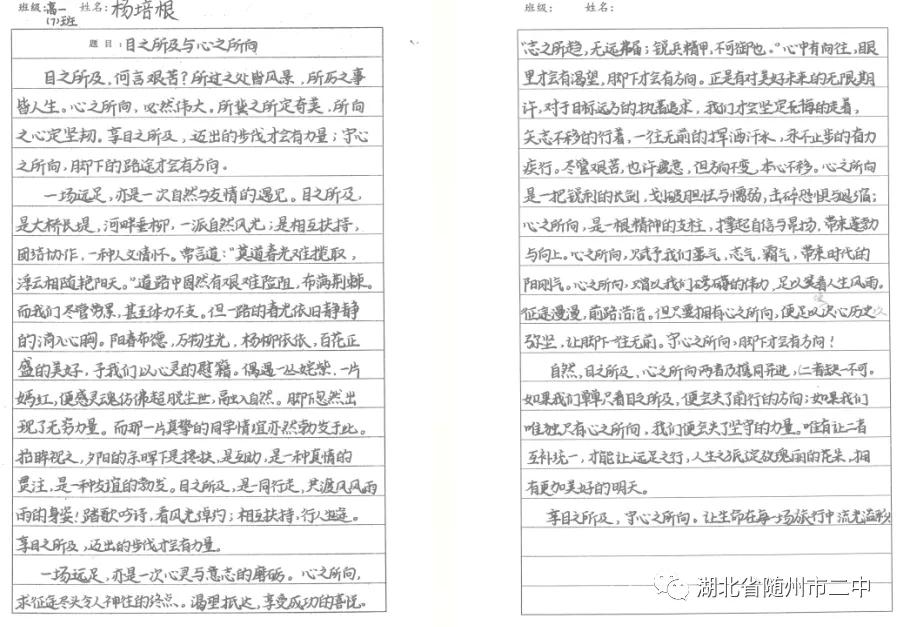 班级:高一(7)班 姓名:杨培根
题目:目之所及与心之所向
目之所及,何言艰苦?所过之处皆风景,所历之事
皆人生。心之所向,必然伟大。所冀之所定奇美,所向
之心定坚韧。享目之所及,迈出的步伐才会有力量;守心
之所向,脚下的路途才会有方向。
一场远足,亦是一次自然与友情的遇见。目之所及,
是大桥长堤,河畔垂柳,一派自然风光;是相互扶持,
团结协作,一种人文情怀。常言道:“莫道春光难揽取,
浮云相随艳阳天。”道路中固然有艰难险阻,布满荆棘。
而我们尽管劳累,甚至体力不支。但一路的春光依旧静静
的淌入心胸。阳春布德,万物生光,杨柳依依,百花正
盛的美好,予我们以心灵的慰籍。偶遇一丛姹紫,一片
嫣红,便感灵魂仿佛超脱尘世,融入自然。脚下忽然出
现了无穷力量。而那一片真挚的同学情谊亦然勃发于此。
抬眸视之,夕阳的余晖下是搀扶,是互助,是一种真情的
贯注,是一种友谊的勃发。目之所及,是一同行走,共渡风风雨
雨的身姿!踏歌吟诗,看风光绰约;相互扶持,行人生途。
享目之所及,迈出的步伐才会有力量。
一场远足,亦是一次心灵与意志的磨砺。心之所向,
求征途尽头令人神往的终点。渴望抵达,享受成功的喜悦。
班级: 姓名:
“志之所趋,无远弗届;锐兵精甲,不可御也。”心中有向往,眼
里才会有渴望,脚下才会有方向。正是有对美好未来的无限期
许,对于目标远方的执着追求,我们才会坚定无悔的走着,
矢志不移的行着,一往无前的挥洒汗水,永不止步的奋力
疾行。尽管艰苦,也许疲惫,但方向不变,本心不移。心之所向
是一把锐利的长剑,划破胆怯与懦弱,击碎恐惧与退缩;
心之所向,是一根精神的支柱,撑起自信与昂扬,带来蓬勃
与向上。心之所向,赋予我们墨气,志气,霸气,带来时代的
阳刚气。心之所向,增以我们磅礴的伟力,足以笑看人生风雨。
征途漫漫,前路浩浩。但只要拥有心之所向,便足以使决心历久
弥坚,让脚下一往无前。守心之所向,脚下才会有方向!
自然,目之所及,心之所向两者乃携同异进,二者缺一不可。
如果我们单单只看目之所及,便会失了前行的方向;如果我们
唯独只有心之所向,我们便会失了坚守的力量。唯有让二者
互补统一,才能让远足之行,人生之旅绽放瑰丽的花朵,拥
有更加美好的明天。
享目之所及,守心之所向。让生命在每一场旅行中流光溢彩
湖北省随州市二中